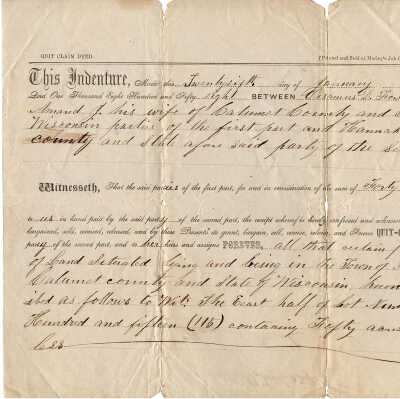 QUIT CLAIM DEED. [Printed and Sold at
This Indenture, Made this Twenty sixth day of January
Lord One Thousand Eight Hundred and Fifty eight BETWEEN Erasmus D.
Amand J. his wife of Calumet County and
Wisconsin parties of the first part and Hannah
county and State afore said party of the
Witnesseth, That the said parties of the first part, for and in consideration of the sum of Forty
to us in hand paid by the said party of the second part, the receipt whereof is hereby confessed and
bargained, sold, remised, released, and by these Presents do grant, bargain, sell, remise, release, and Forever QUIT-
party of the second part, and to her heirs and assigns FOREVER, all that certain
of Land Situated lying and being in the Town of
Calumet county and State of Wisconsin, known
ibed as follows to Wit. The East half of Lot
Hundred and fifteen (115) containing Fifty